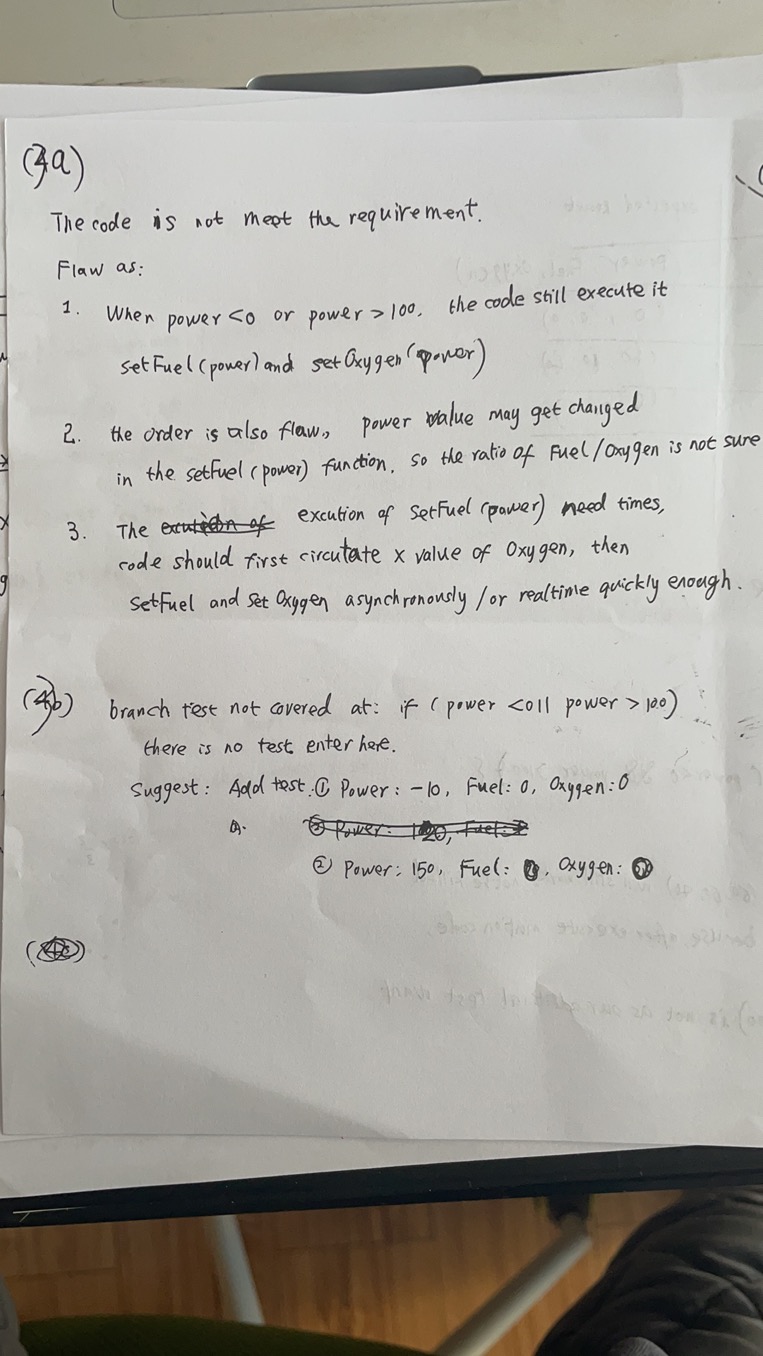 (4a)
The code is not meet the requirement.
Flaw as:
1. When power <0 or power > 100, the code still execute it
setFuel (power) and set Oxygen (power)
2. the order is also flaw, power value may get changed
in the setFuel (power) function, so the ratio of Fuel/Oxygen is not sure
3. The excution of excution of SetFuel (power) need times,
code should first circutate x value of Oxygen, then
SetFuel and Set Oxygen asynchronously /or realtime quickly enough.
(4b) branch test not covered at: if (power <0 || power > 100)
there is no test enter here.
Suggest: Add test. ① Power: -10, Fuel: 0, Oxygen: 0
② Power: 120, Fuel:
② Power: 150, Fuel: , Oxygen:
(4c)